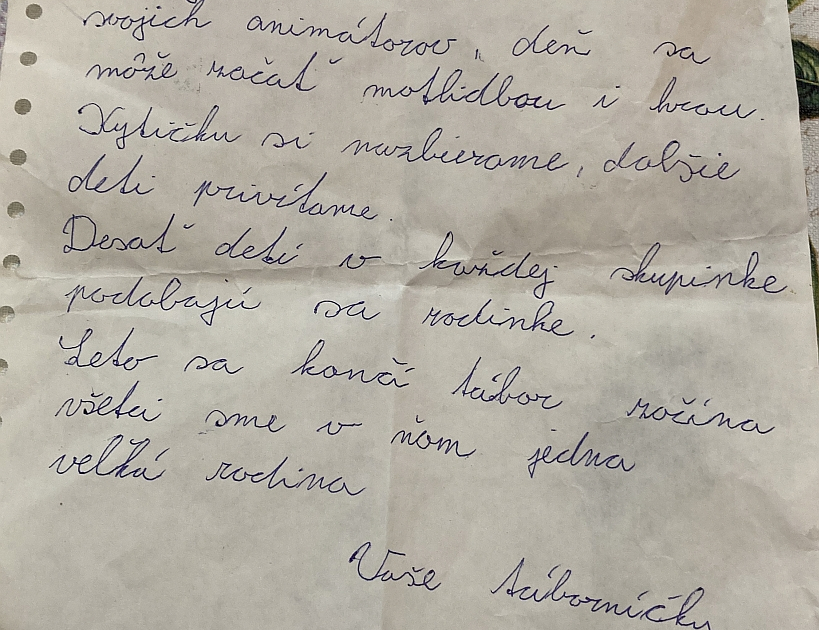 svojich animátorov, deň sa
môže začať motlidbou i hrou.
Kytičku si nazbierame, dalšie
deti privítame.
Desať detí v každej skupinke
podobajú sa rodinke.
Leto sa končí tábor začína
všetci sme v ňom jedna
veľká rodina
Vaše táborníčky